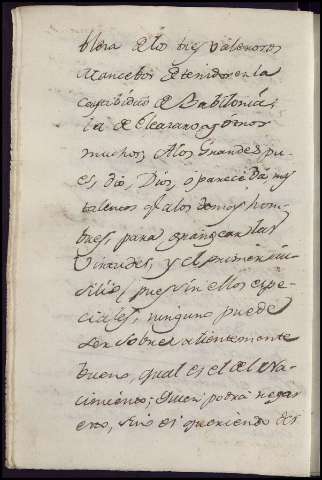 blera de los tres valerosos
Mancebos detenidos en la
Captibidad de Babilonia;
la de Eleazaro, y otros
muchos, A los Grandes pu-
es, dió, Dios,
talentos q̃ a los demas hom-
bres, para grangear las
Virtudes; y el primer au-
silio/ pues sin ellos espe-
ciales, ninguno puede
ser sobresalientemente
bueno, qual es el del Na-
cimiento; Quien podrá negar
esto, sino es queriendo des